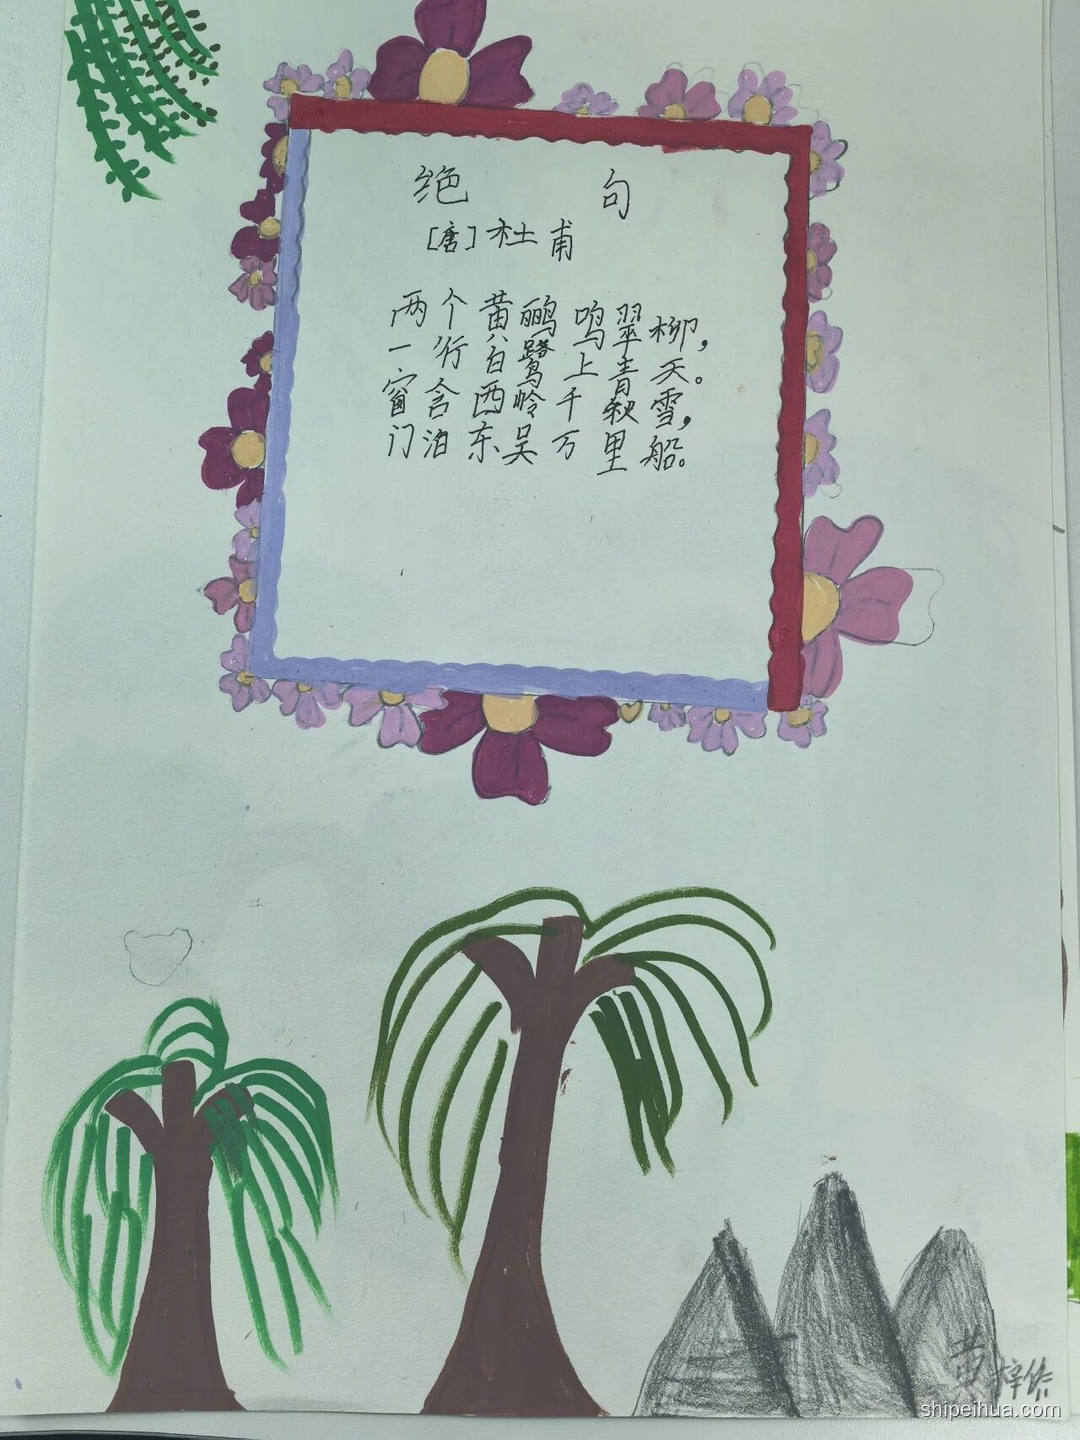 绝 句
[唐]杜甫
两个黄鹂鸣翠柳,
一行白鹭上青天。
窗含西岭千秋雪,
门泊东吴万里船。
黄梓
shipeihua.com